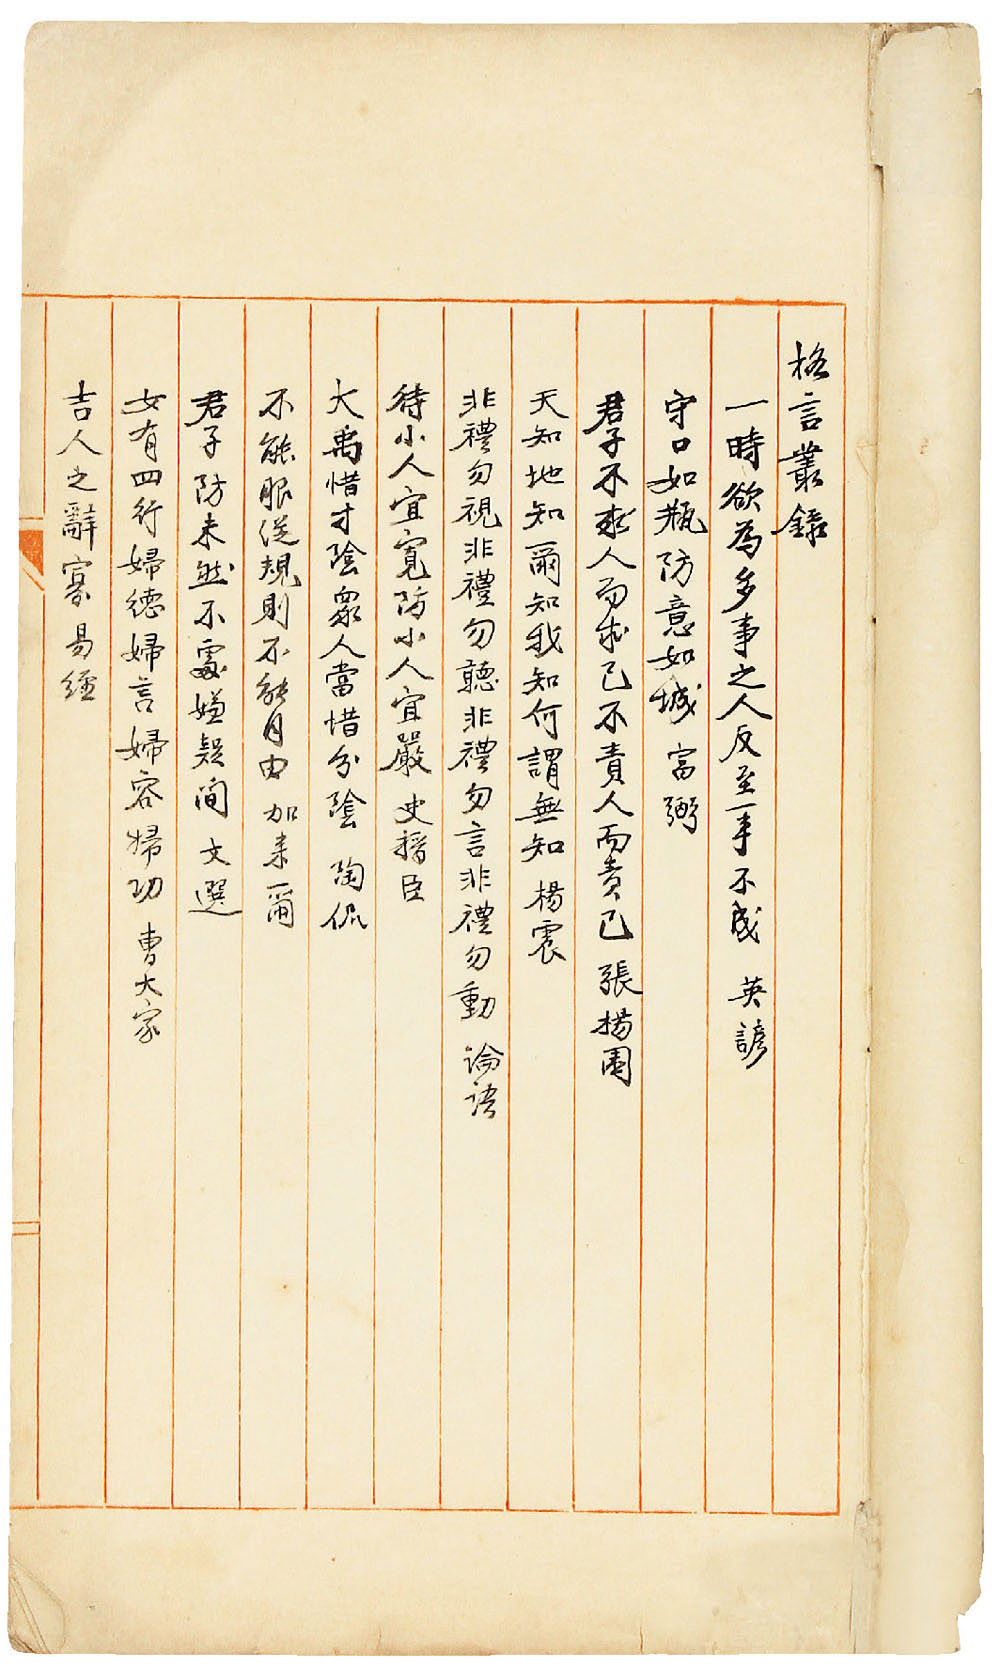 格言叢錄
一時欲為多事之人反至一事不成 英諺
守口如瓶防意如城 富弼
君子不求人而求己不責人而責己 張楊園
天知地知爾知我知何謂無知 楊震
非禮勿視非禮勿聽非禮勿言非禮勿動 論語
待小人宜寬防小人宜嚴 史搢臣
大禹惜寸陰眾人當惜分陰 陶侃
不能服從規則不能自由 加來爾
君子防未然不處嫌疑間 文選
女有四行婦德婦言婦容婦功 曹大家
吉人之辭寡易經